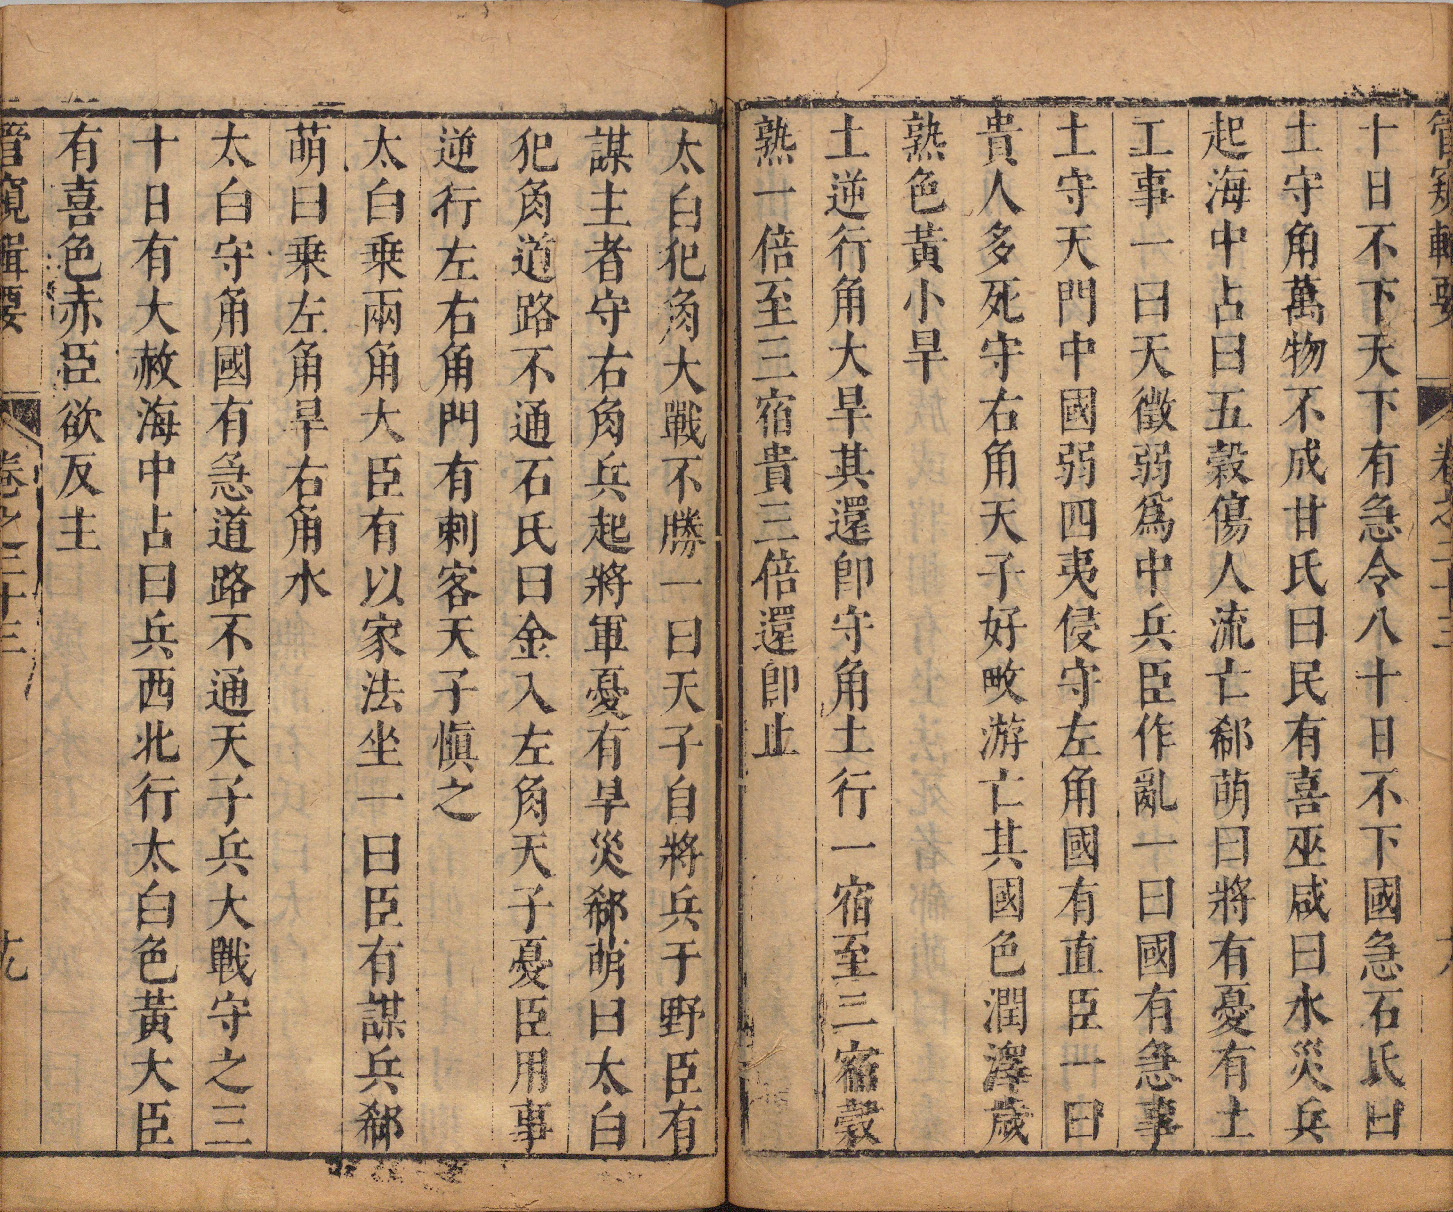 管窺輯要 卷之二十三
十日不下天下有急令八十日不下國急石氏曰
土守角萬物不成甘氏曰民有喜巫咸曰水災兵
起海中占曰五穀傷人流亡郗萌曰將有憂有土
工事一曰天徵弱爲中兵臣作亂一曰國有急事
土守天門中國弱四夷侵守左角國有直臣一曰
貴人多死守右角天子好畋游亡其國色潤澤歲
熟色黃小旱
土逆行角大旱其還卽守角土行一宿至二宿穀
熟一倍至三宿貴三倍還卽止
太白犯角大戰不勝一曰天子自將兵于野臣有
謀主者守右角兵起將軍憂有旱災郗萌曰太白
犯角道路不通石氏曰金入左角天子憂臣用事
逆行左右角門有刺客天子愼之
太白乘兩角大臣有以家法坐一曰臣有謀兵郗
萌曰乘左角旱右角水
太白守角國有急道路不通天子兵大戰守之三
十日有大赦海中占曰兵西北行太白色黃大臣
有喜色赤臣欲反主
管窺輯要 卷之二十三